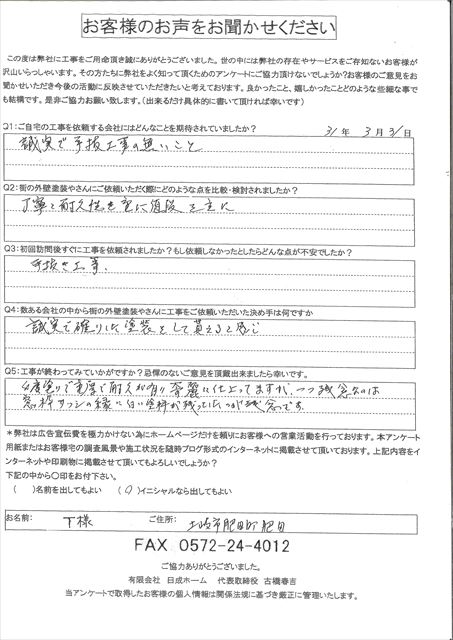 お客様のお声をお聞かせください
この度は弊社に工事をご用命頂き誠にありがとうございました。世の中には弊社の存在やサービスをご存知ないお客様が
沢山いらっしゃいます。その方たちに弊社をよく知って頂くためのアンケートにご協力頂けないでしょうか?お客様のご意見をお
聞かせいただき今後の活動に反映させていただきたいと考えております。良かったこと、嬉しかったことどのような些細な事で
も結構です。是非ご協力お願い致します。(出来るだけ具体的に書いて頂ければ幸いです)
Q1:ご自宅の工事を依頼する会社にはどんなことを期待されていましたか?
31年 3月31日
誠実で手抜工事の無いこと
Q2:街の外壁塗装やさんにご依頼いただく際にどのような点を比較・検討されましたか?
丁寧と耐久性を重に値段を主に
Q3:初回訪問後すぐに工事を依頼されましたか?もし依頼しなかったとしたらどんな点が不安でしたか?
手抜き工事、
Q4:数ある会社の中から街の外壁塗装やさんに工事をご依頼いただいた決め手は何ですか
誠実で確りした塗装をして貰えると感じ
Q5:工事が終わってみていかがですか?忌憚のないご意見を頂戴出来ましたら幸いです。
4度塗りで重厚で耐久が有り綺麗に仕上ってますが、一つ残念なのは
窓枠サッシの縁に白い塗料が残っていたのが残念です。
*弊社は広告宣伝費を極力かけない為にホームページだけを頼りにお客様への営業活動を行っております。本アンケート
用紙またはお客様宅の調査風景や施工状況を随時ブログ形式のインターネットに掲載させて頂いております。上記内容をイ
ンターネットや印刷物に掲載させて頂いてもよろしいでしょうか?
下記の中から〇印をお付下さい。
( )名前を出してもよい (〇)イニシャルなら出してもよい
お名前: T様 ご住所: 土岐市肥田町肥田
FAX 0572-24-4012
ご協力ありがとうございました。
有限会社 日成ホーム 代表取締役 古橋春吉
当アンケートで取得したお客様の個人情報は関係法規に基づき厳正に管理いたします。